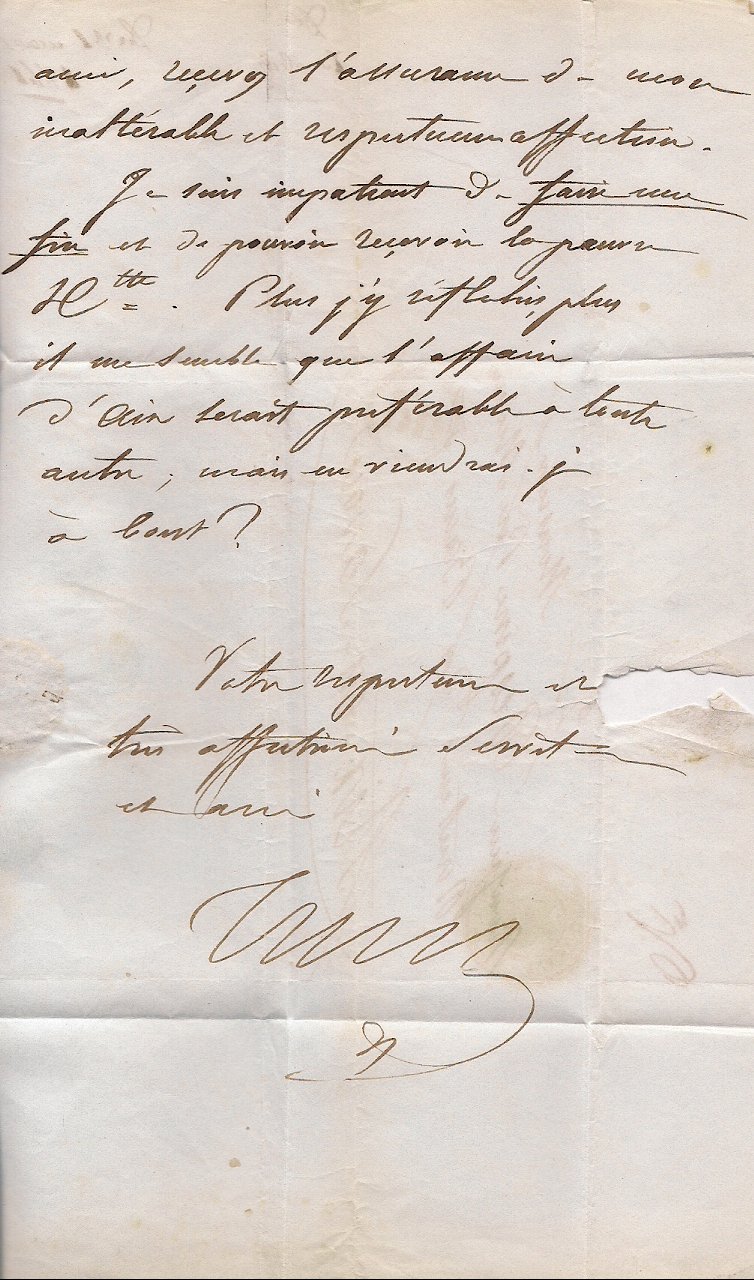 ami, recevez l'assurance de mon
inaltérable et respectueuse affection.
Je suis impatient de faire une
fin et de pouvoir recevoir la pauvre
Htte. Plus j'y réfléchis, plus
il me semble que l'affaire
d'Aix serait préférable à toute
autre ; mais en viendrai-je
à bout ?
Votre respectueux et
très affectionné Servit
et ami